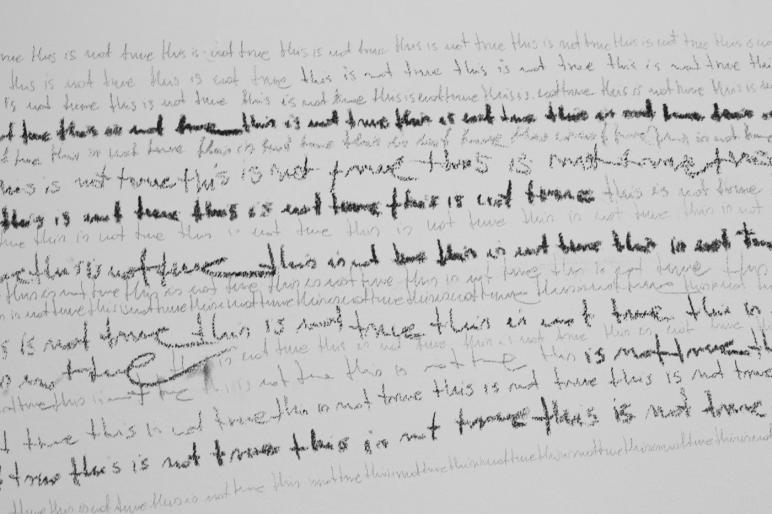 true this is not true this is not true this is not true this is not true this is not true this is not true this is not
this is not true this is not true this is not true this is not true this is not true
is not true this is not true this is not true this is not true this is not true this is not true this is
not true this is not true this is not true this is not true this is not true this is
true this is not true this is not true this is not true this is not true this is not true
this is not true this is not true this is not true this
this is not true this is not true this is not true this is not true
true this is not true this is not true this is not true this is not true this is not
true this is not true this is not true this is not true this is not true
this is not true this is not true this is not true this is not true this is not true this
is not true this is not true this is not true this is not true this is not true this is not true this is not
is not true this is not true this is not true this is
this is not true this is not true this is not true this is not true
is not true this is not true this is not true this is not true
not true this is not true this is not true this is not true
true this is not true this is not true this is not true this is not true
true this is not true this is not true this is not true
true this is not true this is not true this is not true this is not true this is not true this is not true this is not